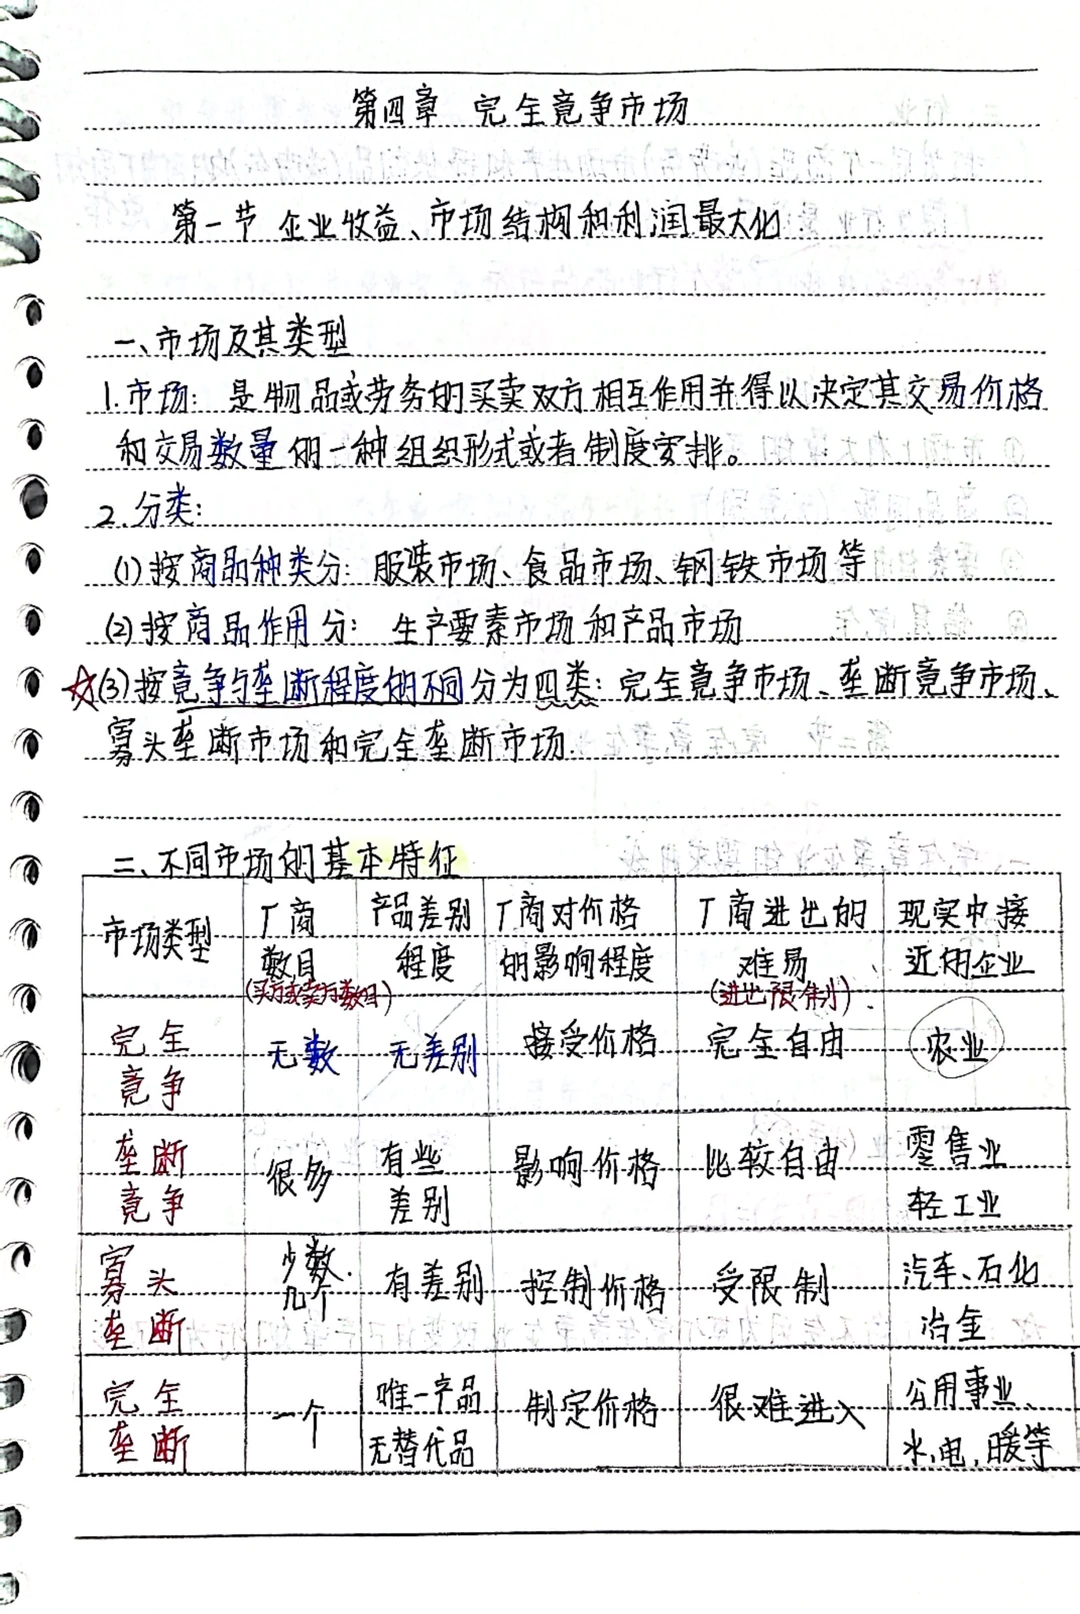 第四章 完全竞争市场
第一节 企业收益、市场结构和利润最大化
一、市场及其类型
1.市场：是物品或劳务的买卖双方相互作用并得以决定其交易价格
和交易数量的一种组织形式或者制度安排。
2.分类：
(1)按商品种类分：服装市场、食品市场、钢铁市场等
(2)按商品作用分：生产要素市场和产品市场
☆(3)按竞争与垄断程度的不同分为四类：完全竞争市场、垄断竞争市场、
寡头垄断市场和完全垄断市场.
二、不同市场的基本特征
市场类型 厂商数目(买方或卖方数目) 产品差别程度 厂商对价格的影响程度 厂商进出的难易(进出限制) 现实中接近的企业
完全竞争 无数 无差别 接受价格 完全自由 农业
垄断竞争 很多 有些差别 影响价格 比较自由 零售业 轻工业
寡头垄断 少数.几个 有差别 控制价格 受限制 汽车、石化 冶金
完全垄断 一个 唯一产品 无替代品 制定价格 很难进入 公用事业、水,电,暖等